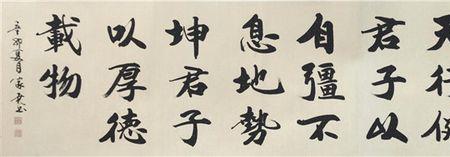 天行健
君子以
自彊不
息地勢
坤君子
以厚德
載物
辛卯夏月